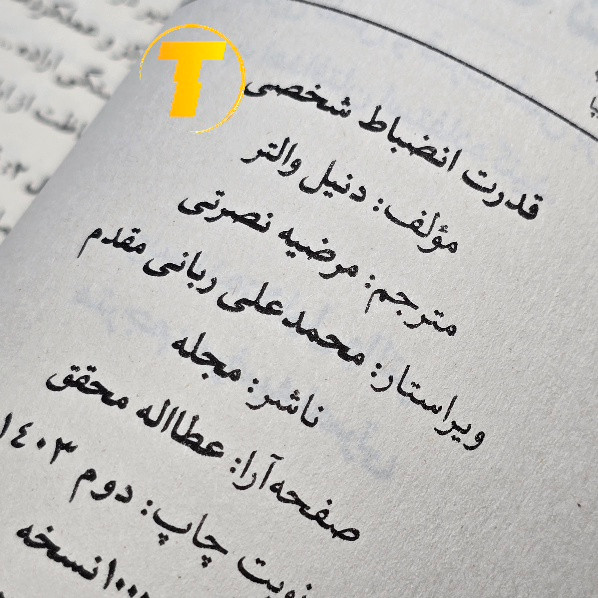 قدرت انضباط شخصی
مؤلف: دنیل والتر
مترجم: مرضیه نصرتی
ویراستار: محمدعلی ربانی مقدم
ناشر: مجله
صفحه‌آرا: عطااله محقق
نوبت چاپ: دوم ۱۴۰۳
۱۰۰۰نسخه
T